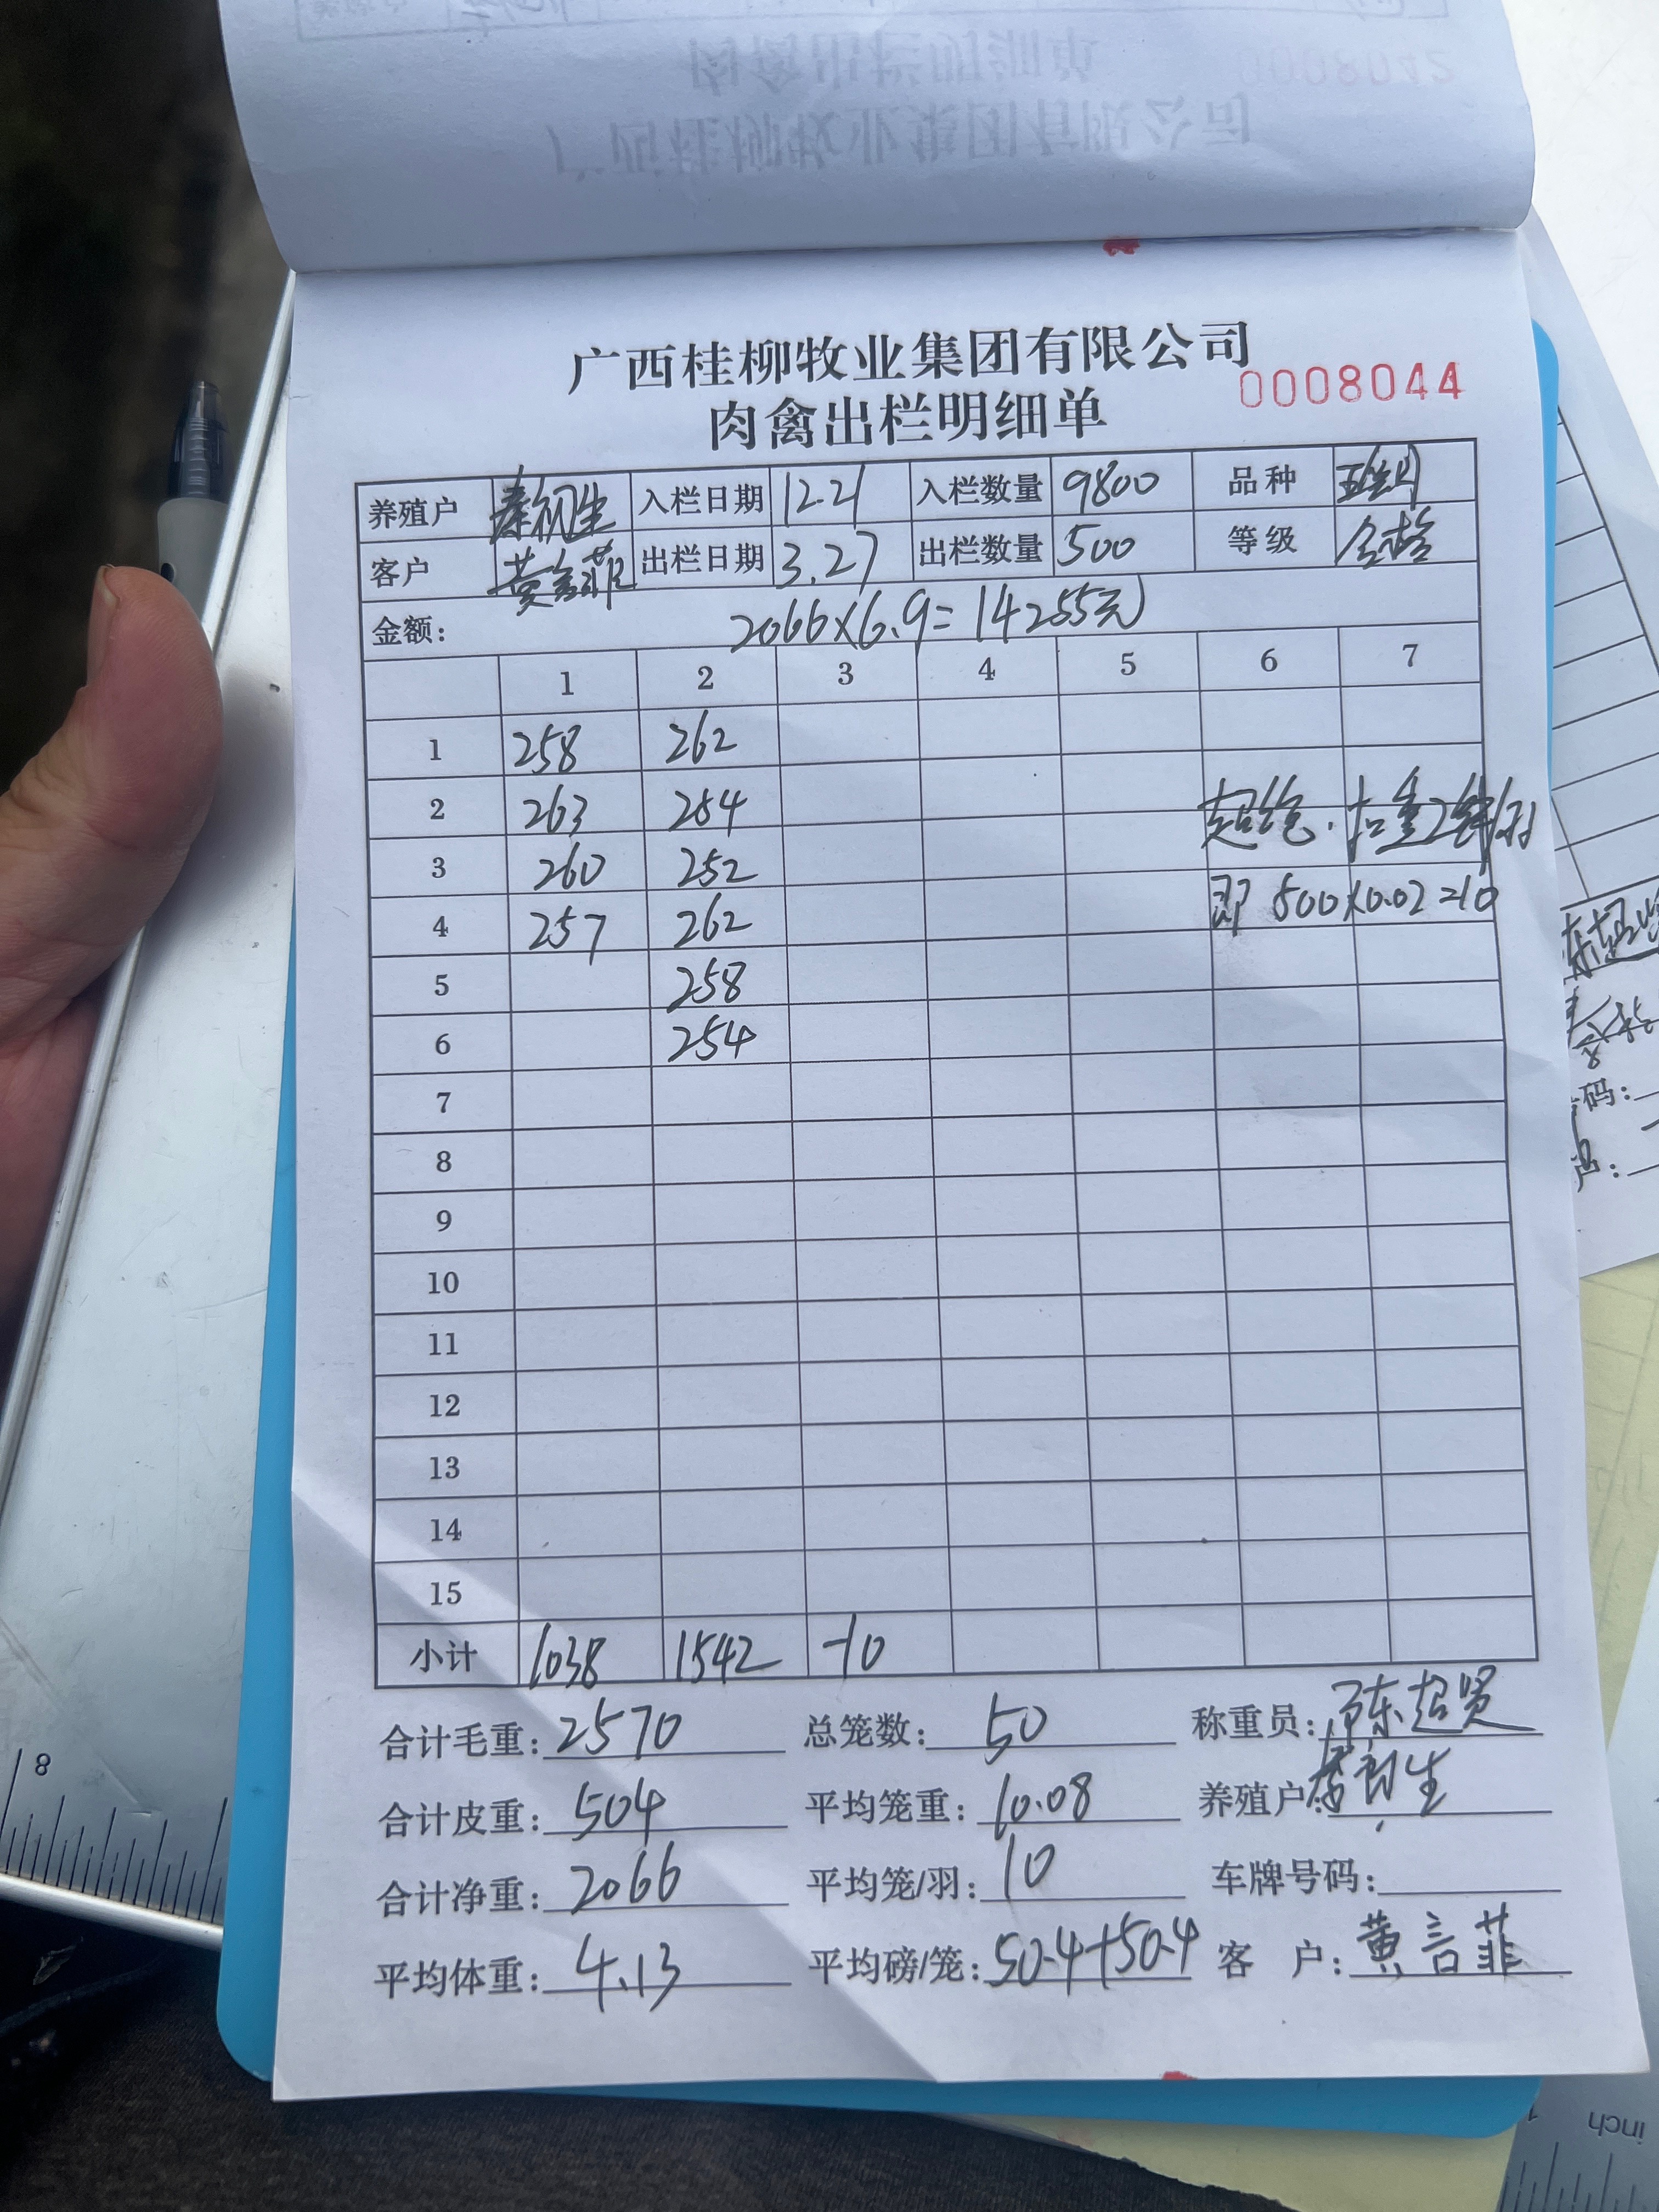 广西桂柳牧业集团有限公司
肉禽出栏明细单 0008044
养殖户 秦初生 入栏日期 12.21 入栏数量 9800 品种
客户 黄言菲 出栏日期 3.27 出栏数量 500 等级 合格
金额: 2066×6.9=14255元
1 2 3 4 5 6 7
1 258 262
2 263 254 超饱.
3 260 252
4 257 262 即 500×0.02=10
5 258
6 254
7
8
9
10
11
12
13
14
15
小计 1038 1542 -10
合计毛重: 2570 总笼数: 50 称重员: 陈超贤
合计皮重: 504 平均笼重: 10.08 养殖户: 秦初生
合计净重: 2066 平均笼/羽: 10 车牌号码:
平均体重: 4.13 平均磅/笼: 50.4+50.4 客 户: 黄言菲
8
inch